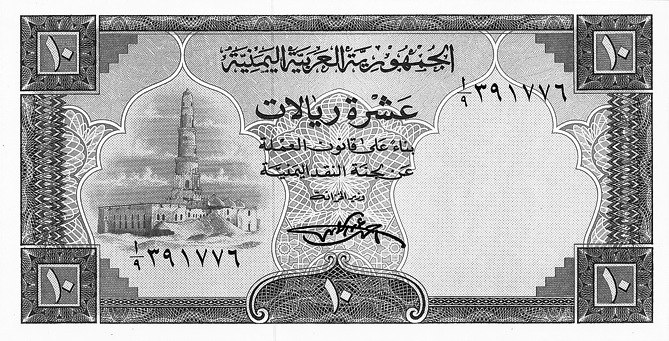 ١٠
١٠
الجمهورية العربية اليمنية
١/٩ ٣٩١٧٧٦
عشرة ريالات
بناء على قانون العملة
عن لجنة النقد اليمنية
وزير الخزانة
١/٩ ٣٩١٧٧٦
١٠
١٠
١٠